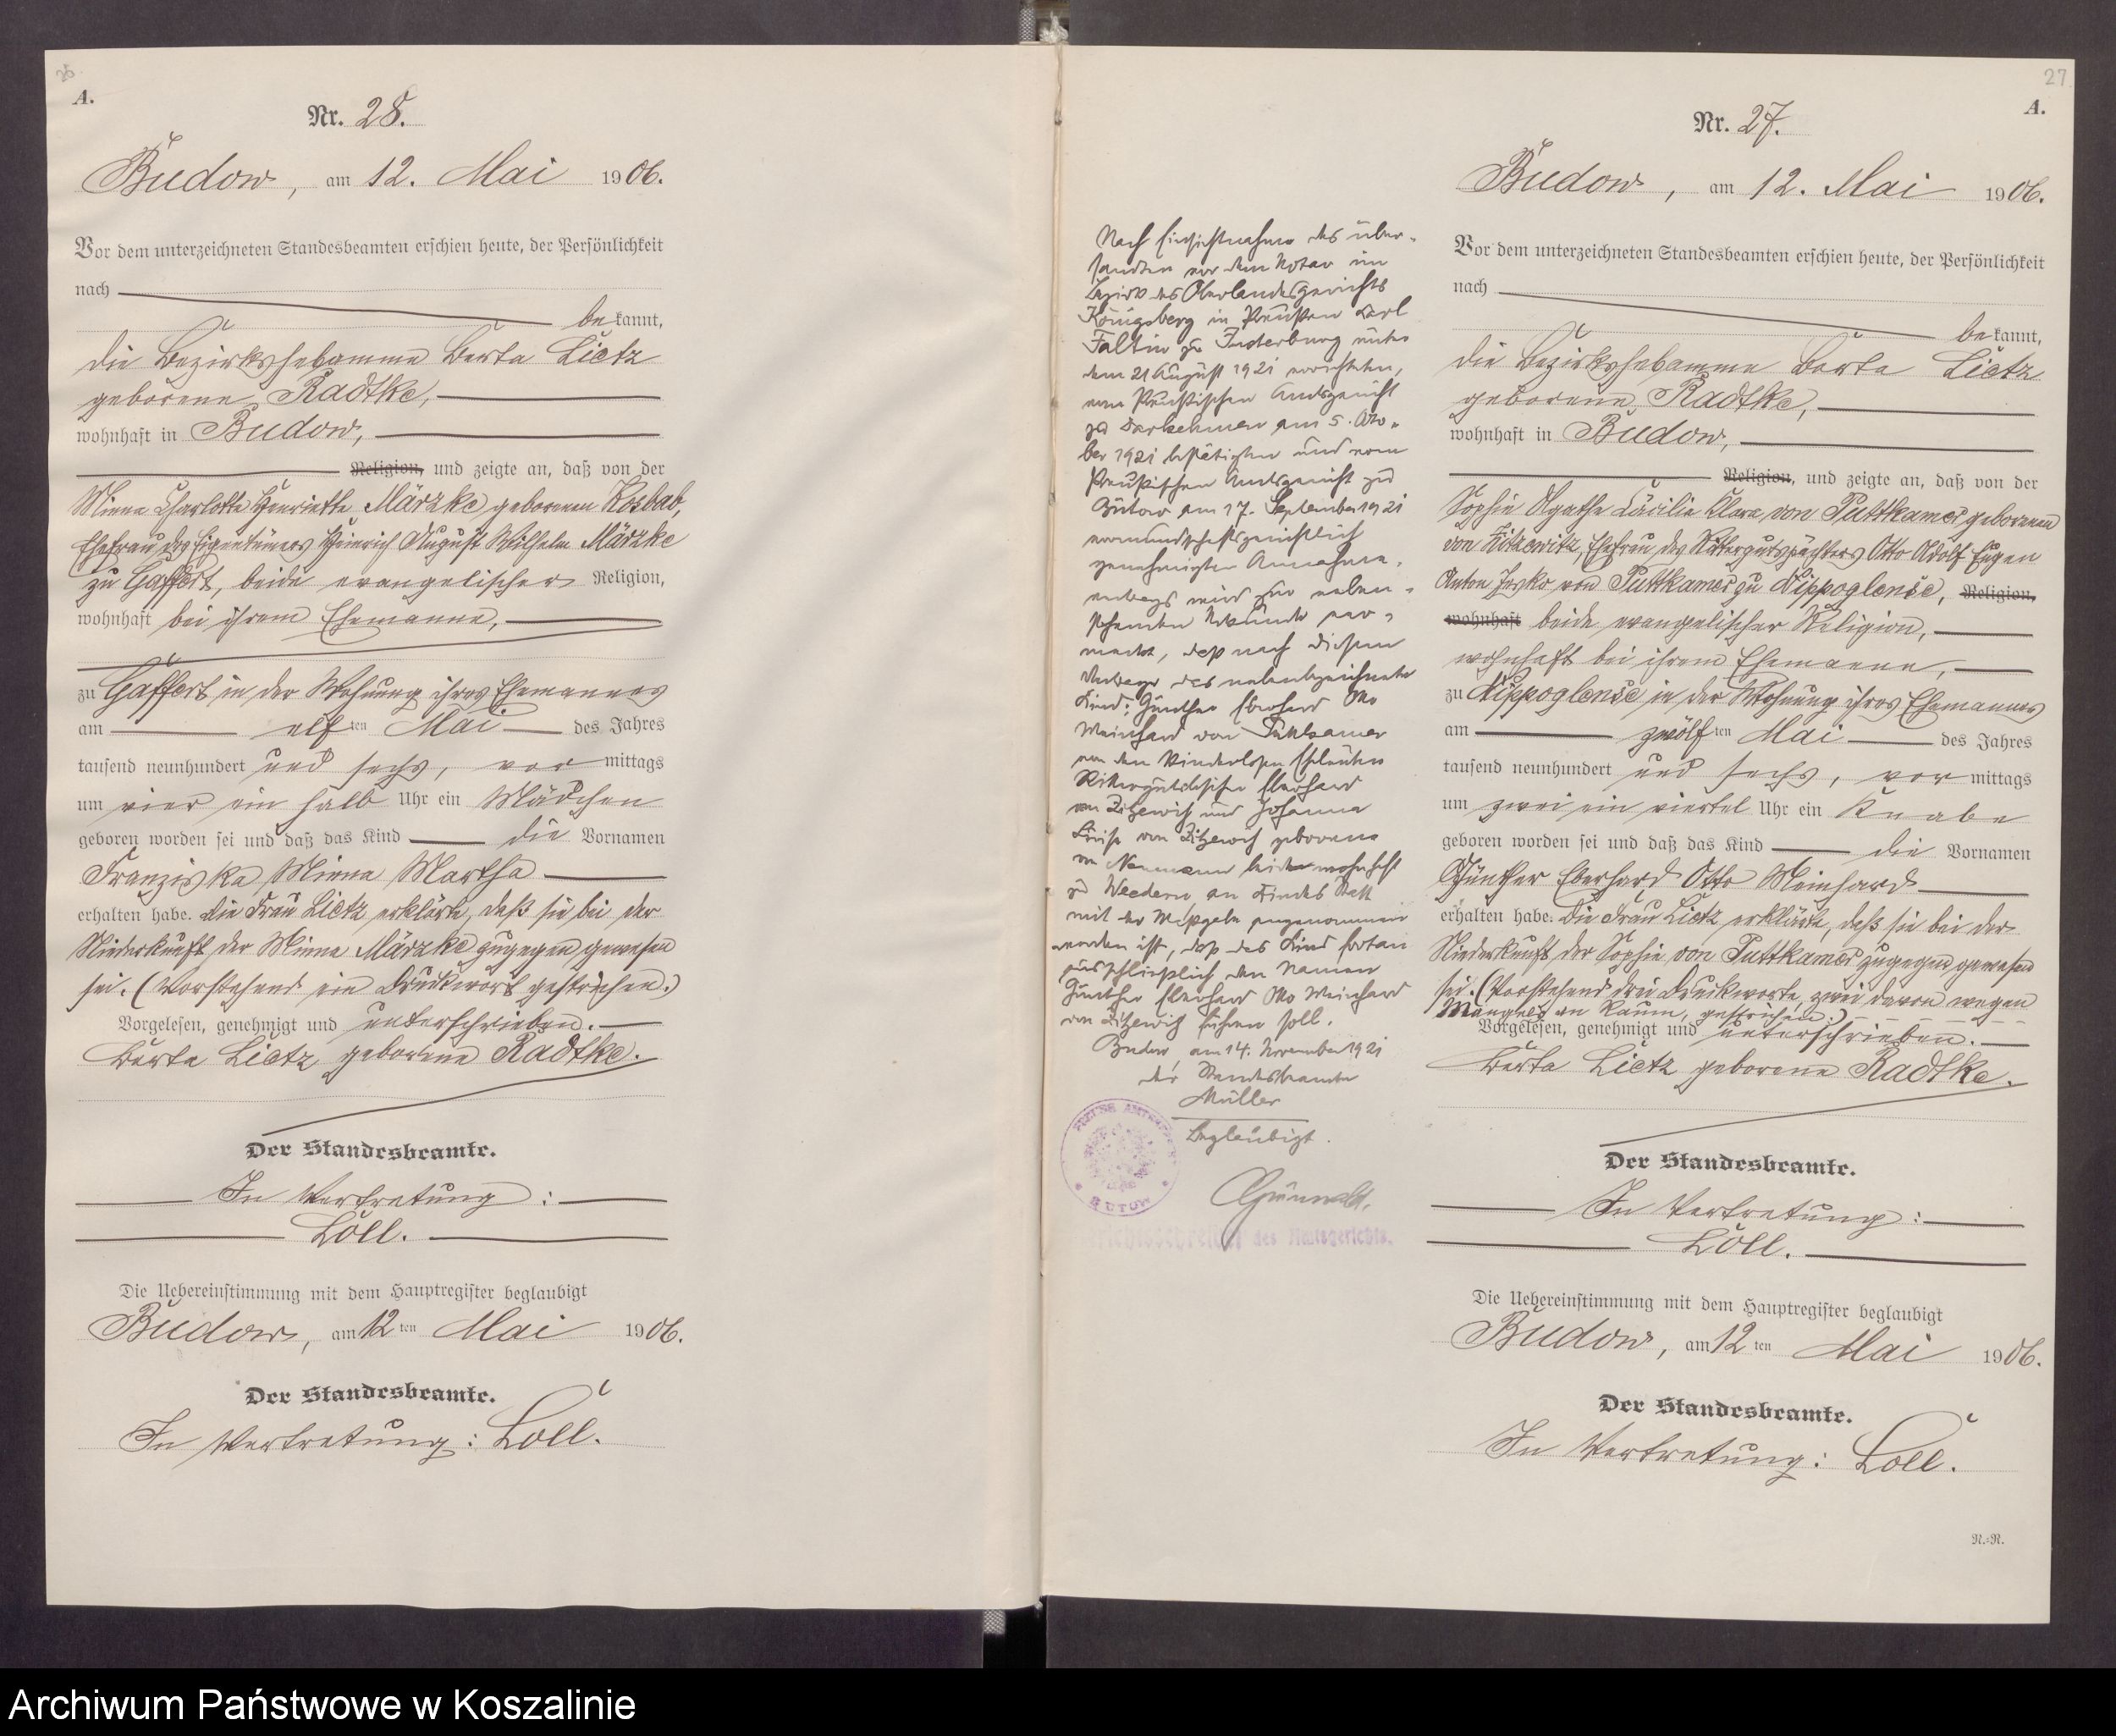 26
A.
Nr. 28.
Budow, am 12. Mai 1906.
Vor dem unterzeichneten Standesbeamten erschien heute, der Persönlichkeit
nach
bekannt,
die Bezirkshebamme Berta Lietz
geborene Radtke,
wohnhaft in Budow,
Religion, und zeigte an, daß von der
Minna Charlotte Henriette Märzke geborenen Kosbab,
Ehefrau des Eigentümers Heinrich August Wilhelm Märzke
zu Gaffert, beide evangelischer Religion,
wohnhaft bei ihrem Ehemanne,
zu Gaffert in der Wohnung ihres Ehemannes
am elften Mai des Jahres
tausend neunhundert und sechs, vormittags
um vier ein halb Uhr ein Mädchen
geboren worden sei und daß das Kind die Vornamen
Franziska Minna Martha
erhalten habe. Die Frau Lietz erklärte, daß sie bei der
Niederkunft der Minna Märzke zugegen gewesen
sei. (Vorstehend ein Druckwort gestrichen.)
Vorgelesen, genehmigt und unterschrieben.
Berta Lietz geborene Radtke.
Der Standesbeamte.
In Vertretung:
Loll.
Die Uebereinstimmung mit dem Hauptregister beglaubigt
Budow, am 12ten Mai 1906.
Der Standesbeamte.
In Vertretung: Loll.
Nach Einsichtnahme des über-
sandten vor dem Notar im
Bezirk des Oberlandesgerichts
Königsberg in Preußen Karl
Faltin zu Insterburg unter
dem 21 August 1921 errichteten,
vom Preußischen Amtsgericht
zu Darkehmen am 5. Okto-
ber 1921 bestätigten und vom
Preußischen Amtsgericht zu
Bütow am 17. September 1921
vormundschaftsgerichtlich
genehmigten Annahme-
vertrags wird zur neben-
stehenden Urkunde ver-
merkt, daß nach diesem
Vertrage das nebenbezeichnete
Kind: Günther Eberhard Otto
Meinhard von Puttkamer
von den kinderlosen Eheleuten
Rittergutsbesitzer Eberhard
von Zitzewitz und Johanna
Luise von Zitzewitz geborene
von Neumann beide wohnhaft
zu Weedern, an Kindes Statt
mit der Maßgabe angenommen
worden ist, daß das Kind fortan
ausschließlich den Namen
Günther Eberhard Otto Meinhard
von Zitzewitz führen soll.
Budow, am 14. November 1921
der Standesbeamte
Müller
Beglaubigt.
Grünwald,
Gerichtsschreiber des Amtsgerichts.
PREUSS. AMTSGERICHT
BUTOW
27
A.
Nr. 27.
Budow, am 12. Mai 1906.
Vor dem unterzeichneten Standesbeamten erschien heute, der Persönlichkeit
nach
bekannt,
die Bezirkshebamme Berta Lietz
geborene Radtke,
wohnhaft in Budow,
Religion, und zeigte an, daß von der
Sophie Agathe Cäcilie Klara von Puttkamer geborenen
von Zitzewitz, Ehefrau des Rittergutspächters Otto Adolf Eugen
Anton Jesko von Puttkamer zu Nippoglense, Religion,
wohnhaft beide evangelischer Religion,
wohnhaft bei ihrem Ehemanne,
zu Nippoglense in der Wohnung ihres Ehemannes
am zwölften Mai des Jahres
tausend neunhundert und sechs, vormittags
um zwei ein viertel Uhr ein Knabe
geboren worden sei und daß das Kind die Vornamen
Günther Eberhard Otto Meinhard
erhalten habe. Die Frau Lietz erklärte, daß sie bei der
Niederkunft der Sophie von Puttkamer zugegen gewesen
sei. (Vorstehend drei Druckworte, zwei davon wegen
Mangels an Raum, gestrichen.)
Vorgelesen, genehmigt und unterschrieben.
Berta Lietz geborene Radtke.
Der Standesbeamte.
In Vertretung:
Loll.
Die Uebereinstimmung mit dem Hauptregister beglaubigt
Budow, am 12ten Mai 1906.
Der Standesbeamte.
In Vertretung: Loll.
N.-R.
Archiwum Państwowe w Koszalinie